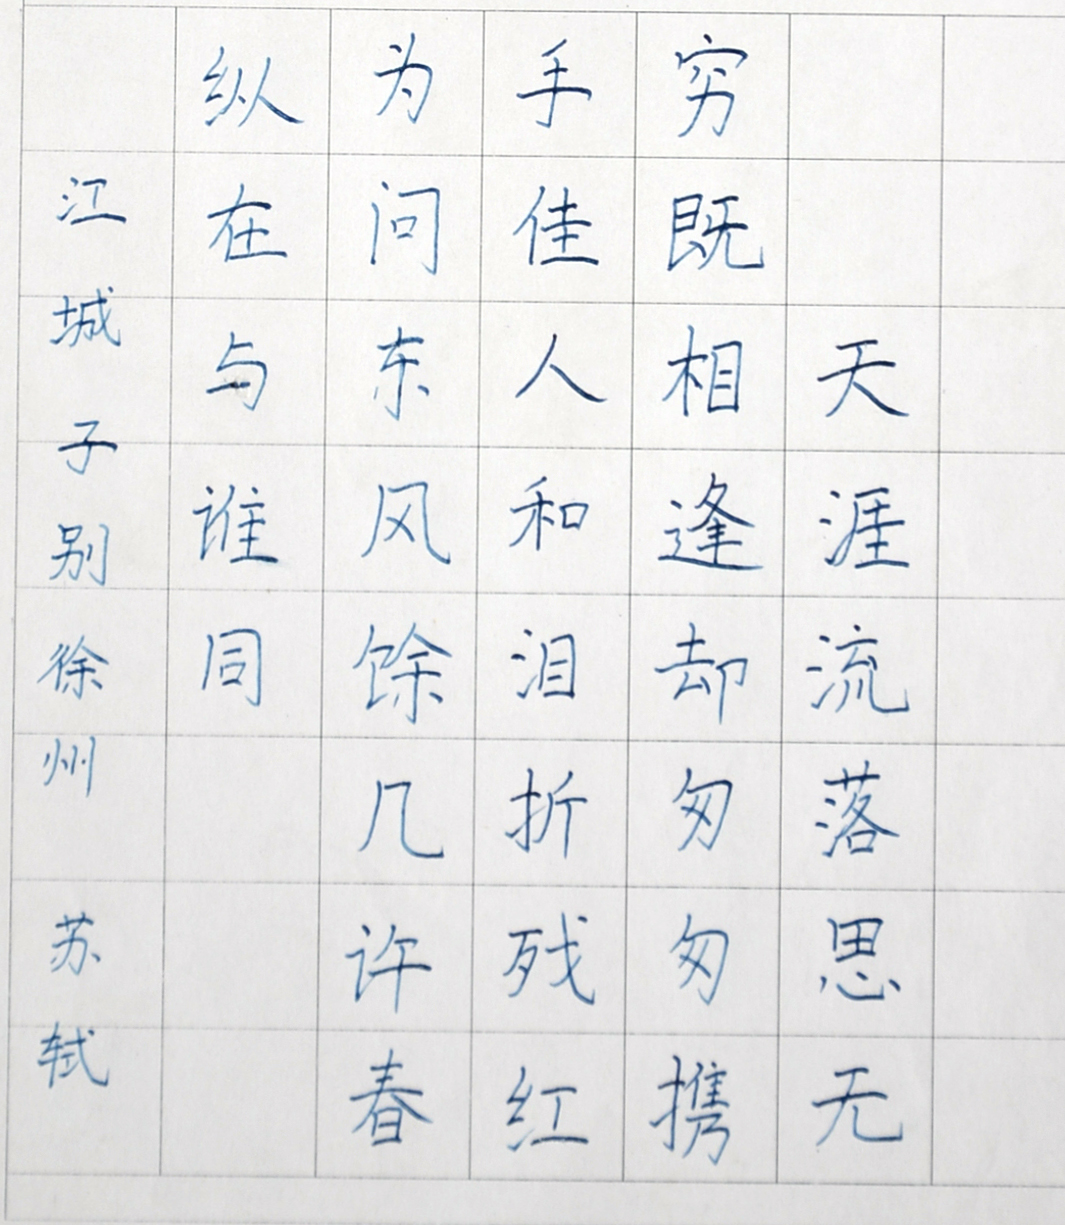 天涯流落思无
穷既相逢却匆匆携
手佳人和泪折残红
为问东风馀几许春
纵在与谁同
江城子别徐州 苏轼